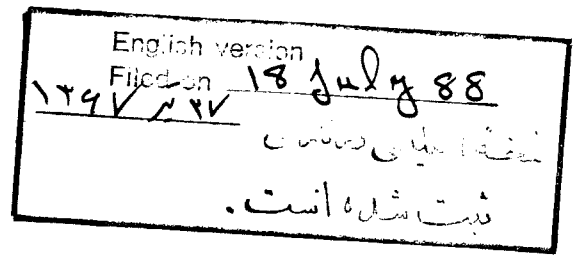 English version
Filed on 18 July 88
۱۳۶۷ تیر ۲۷
نسخه انگلیسی در تاریخ
ثبت شده است.